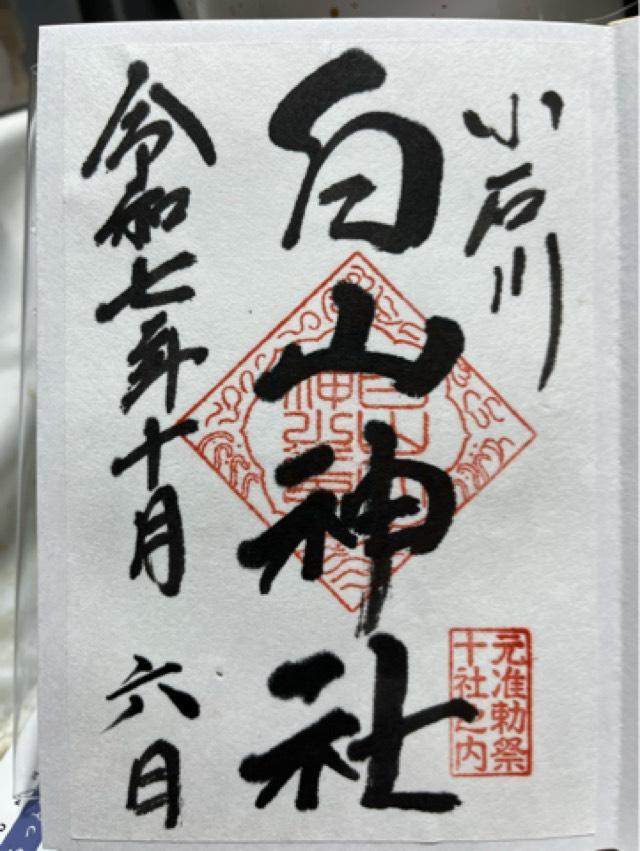 小石川
白山神社
令和七年十月 六日
元准勅祭
十社之内